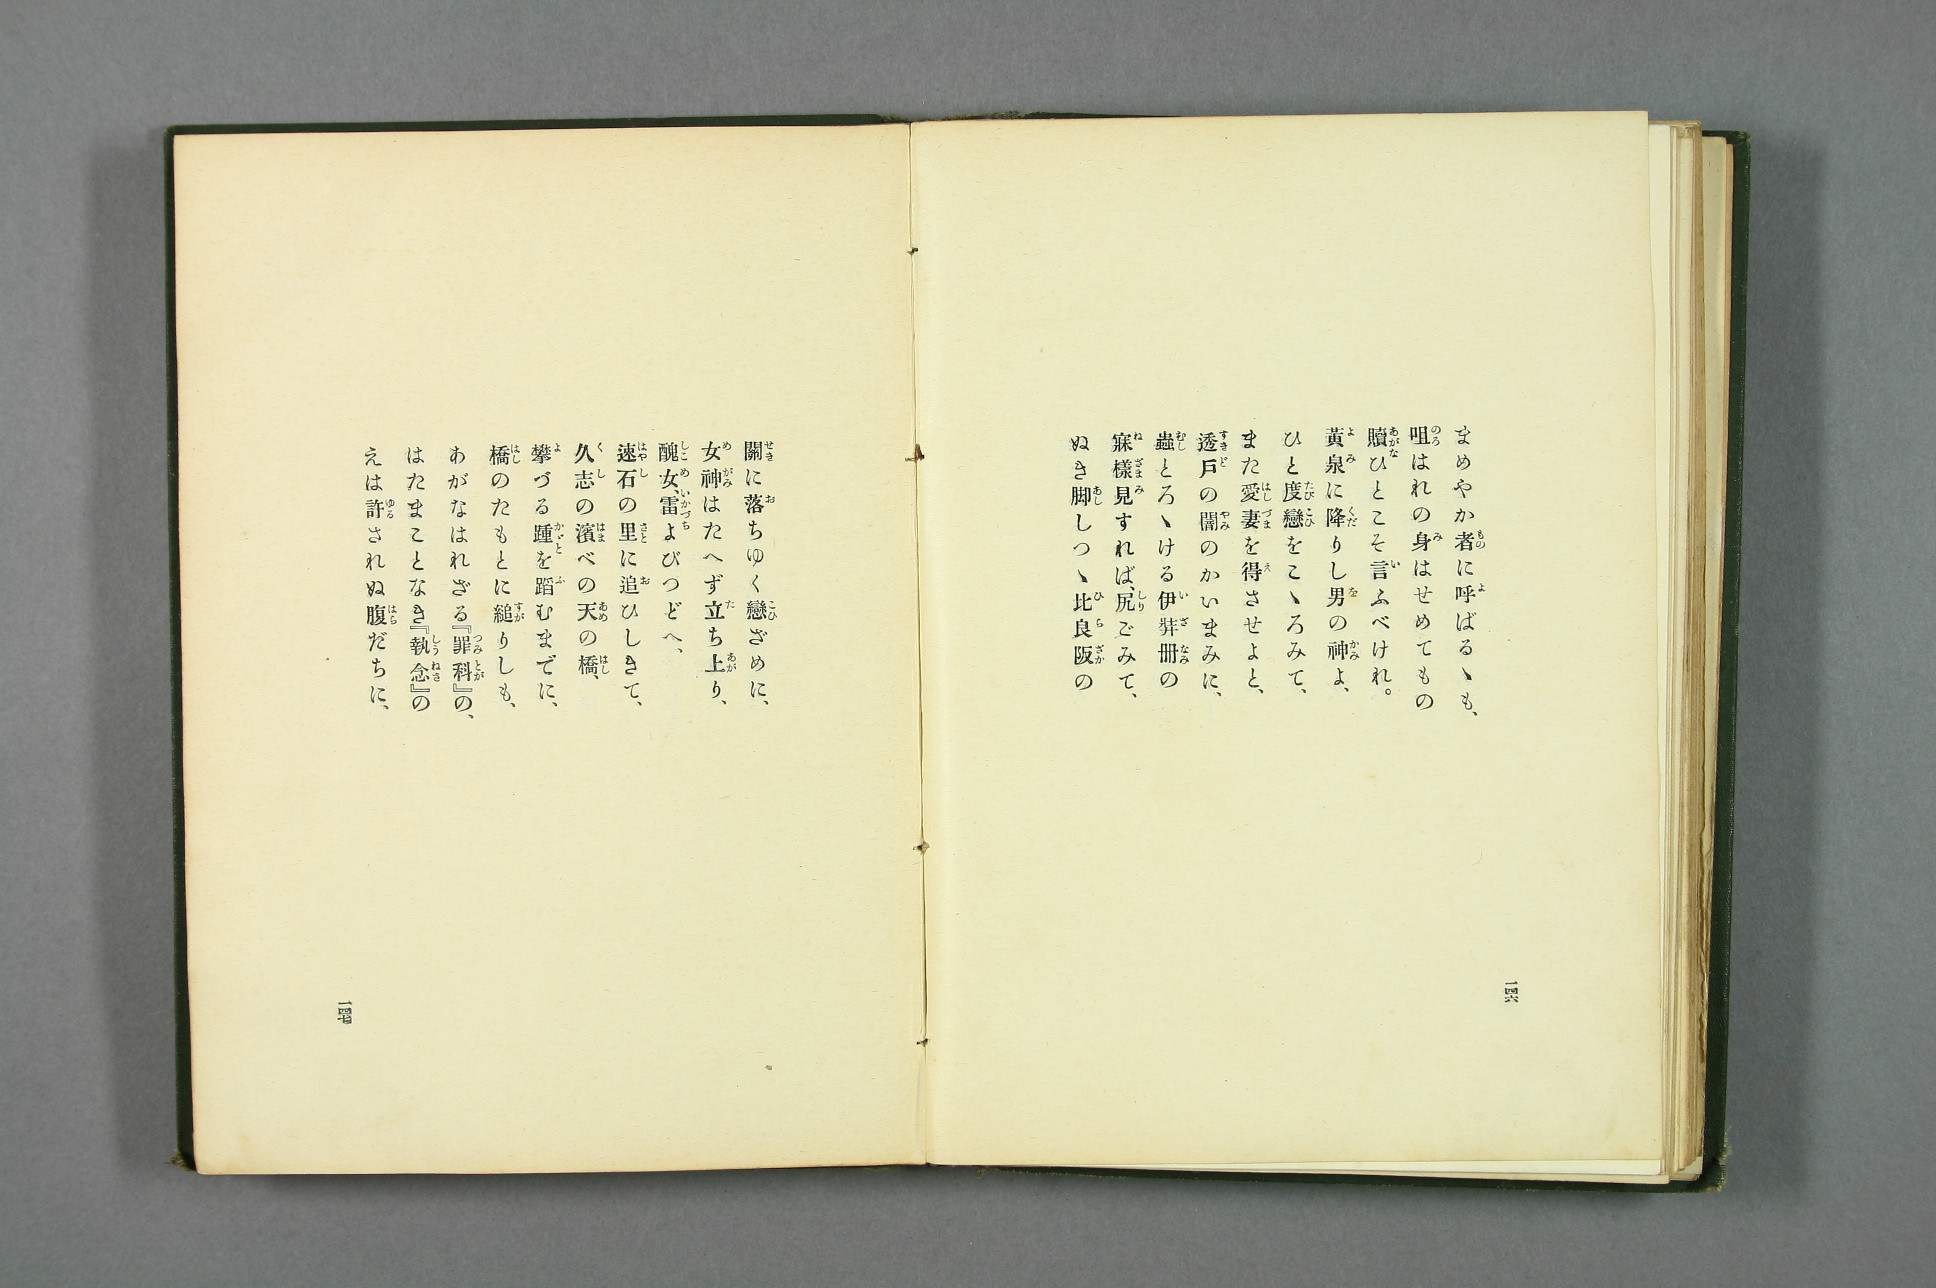 まめやか者に呼ばるゝも、
咀はれの身はせめてもの
贖ひとこそ言ふべけれ。
黃泉に降りし男の神よ、
ひと度戀をこゝろみて、
また愛妻を得させよと、
透戶の闇のかいまみに、
蟲とろゝける伊弉冊の
寐樣見すれば、尻ごみて、
ぬき脚しつゝ比良阪の
一四六
關に落ちゆく戀ざめに、
女神はたへず立ち上り、
醜女、雷よびつどへ、
速石の里に追ひしきて、
久志の濱べの天の橋、
攀づる踵を蹈むまでに、
橋のたもとに縋りしも、
あがなはれざる『罪科』の、
はたまことなき『執念』の
えは許されぬ腹だちに、
一四七